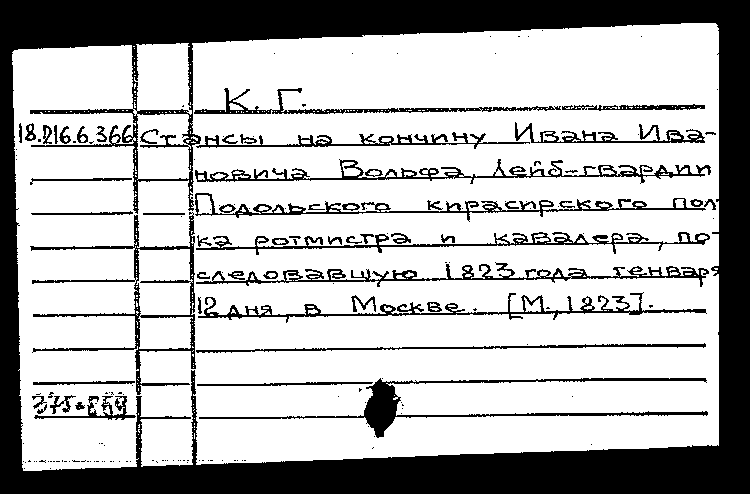 К. Г.
18.216.6.366 Стансы на кончину Ивана Ива-
новича Вольфа, лейб-гвардии
Подольского кирасирского пол-
ка ротмистра и кавалера, по-
следовавшую 1823 года генваря
12 дня, в Москве. [М., 1823].
375-869